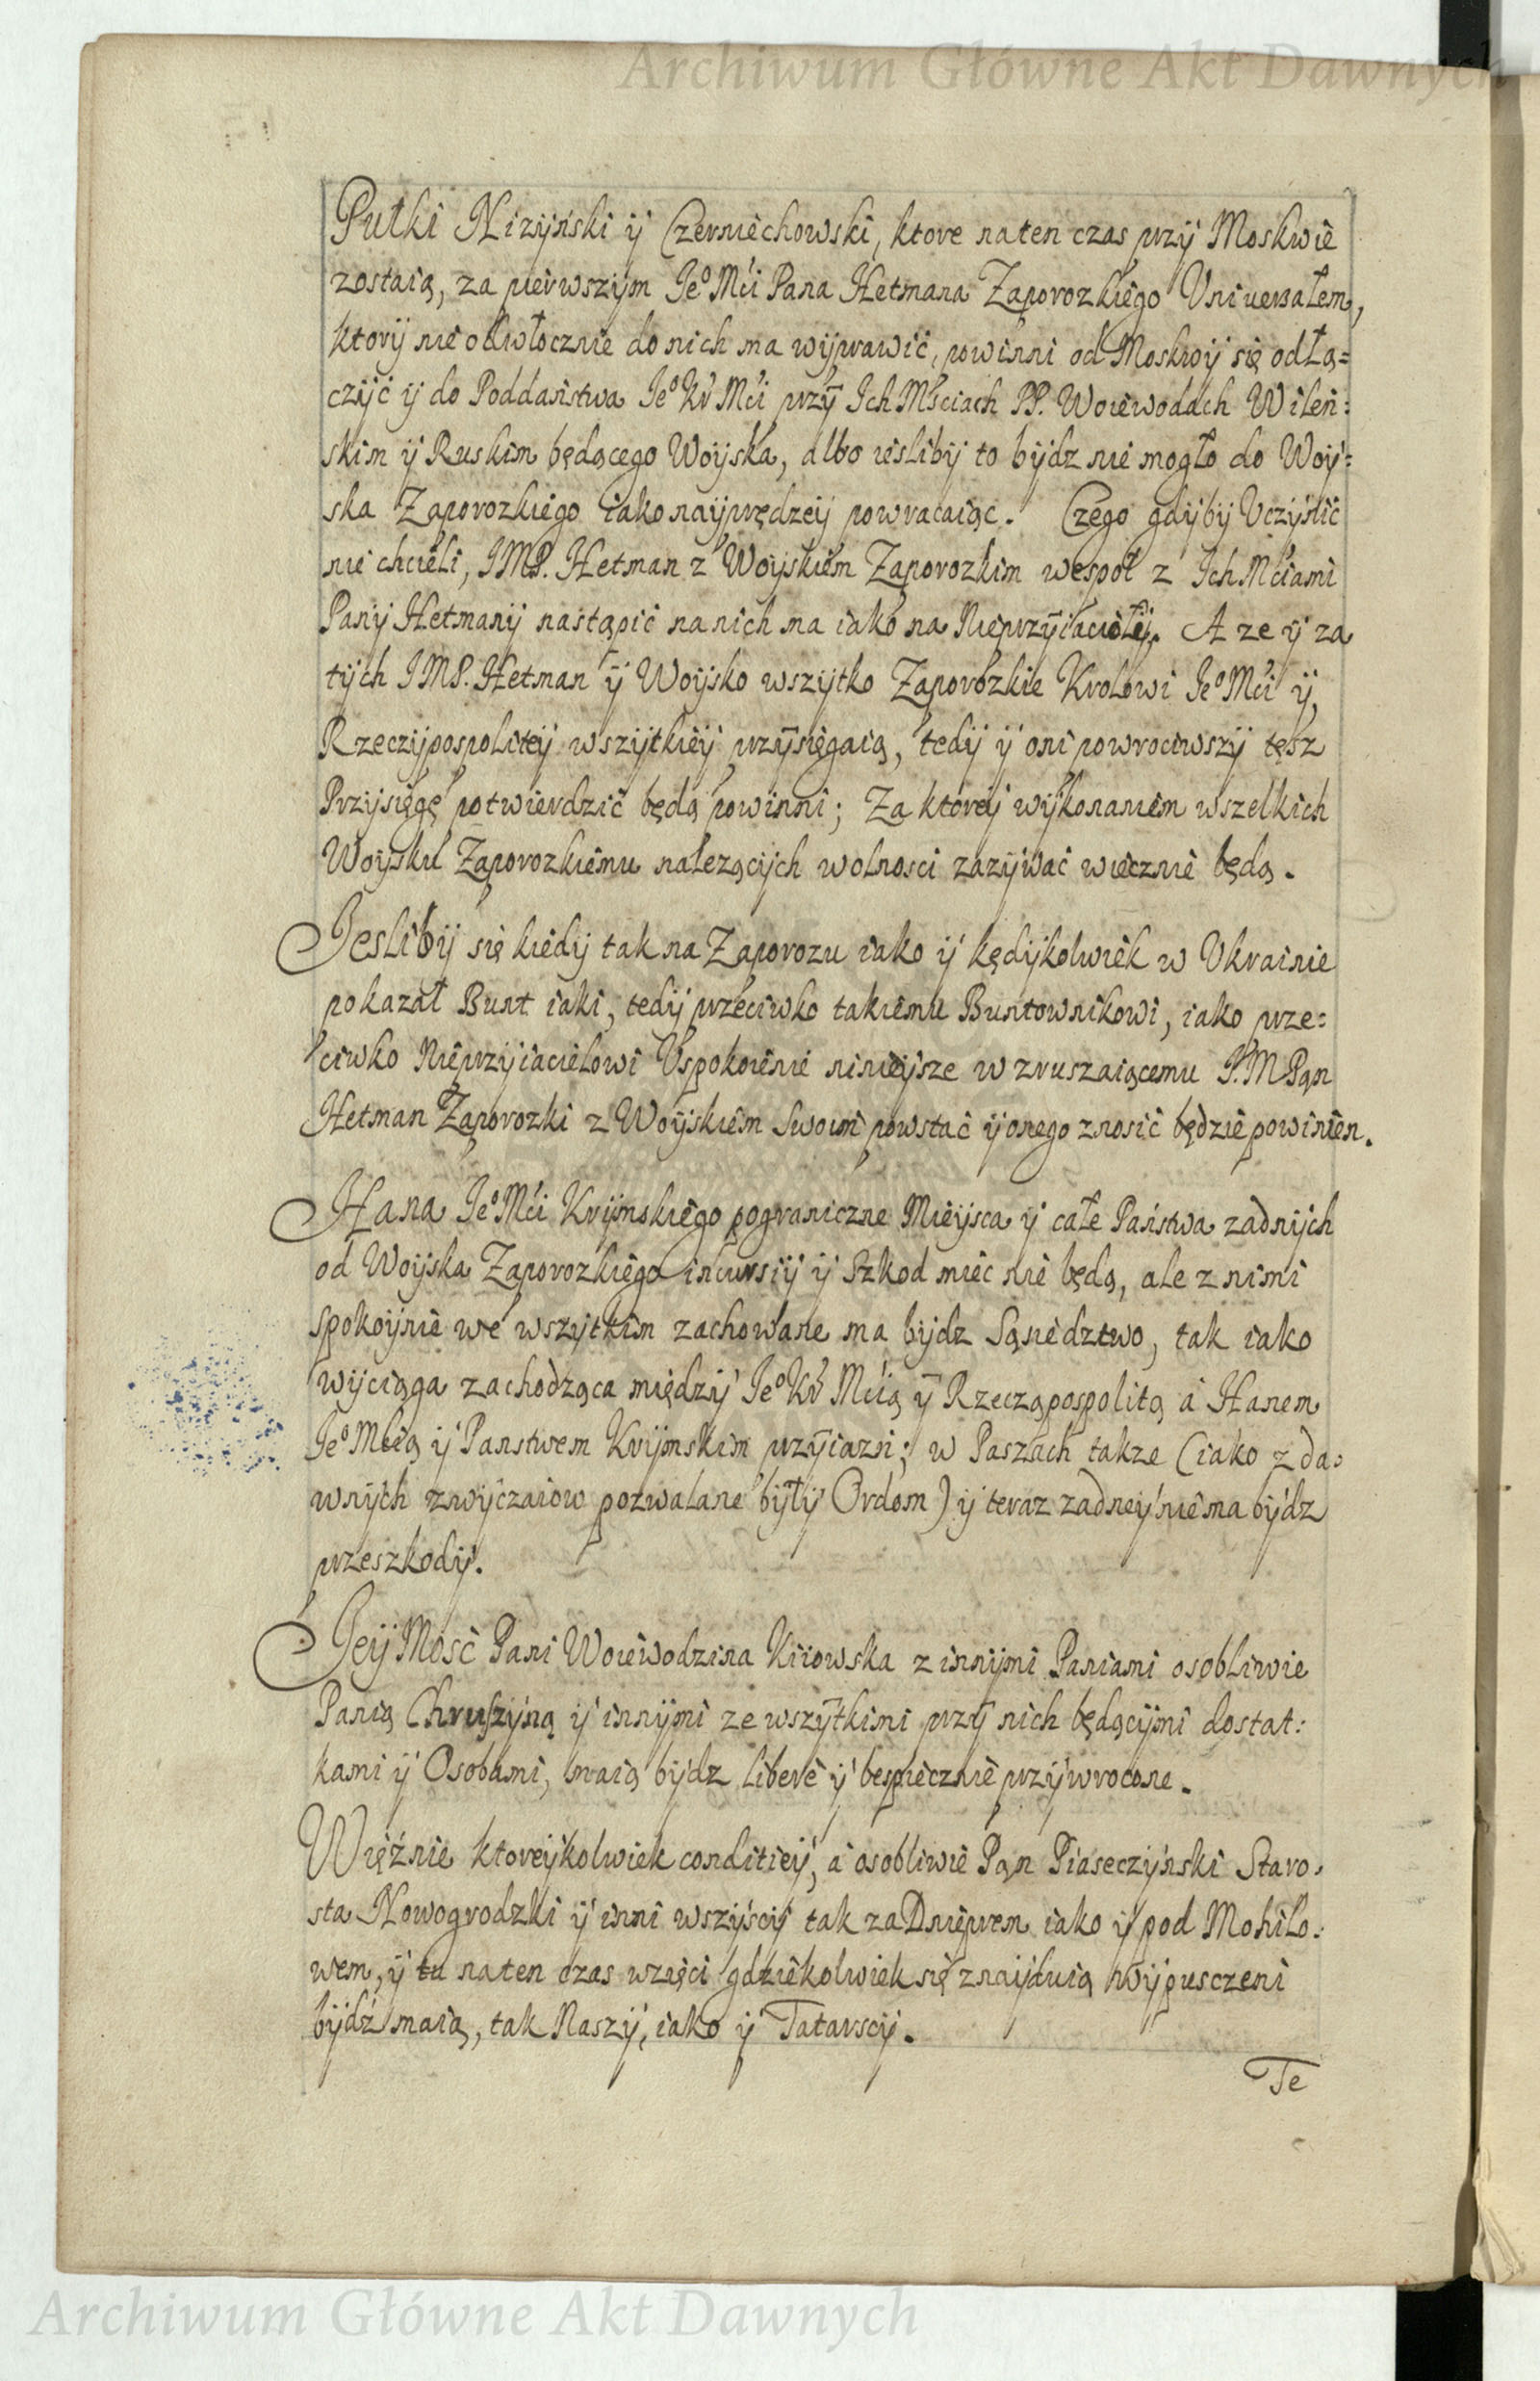 Archiwum Główne Akt Dawnych
Pułki Nizÿński ÿ Czerniechowski, ktore na ten czas przÿ Moskwie
zostaią, za pierwszÿm Jeº Mći Pana Hetmana Zaporozkiego Vniuersałem,
ktorÿ nieodwłocznie do nich ma wÿprawić, powinni od Moskwÿ się odłą=
czÿć ÿ do Poddaństwa Jeº Kr̃ Mći przÿ Ich Mściach PP. Woiewodach Wileń:
skim ÿ Ruskim będącego Woÿska, albo iesliby to bÿdz nie mogło do Woÿ:
ska Zaporozkiego iako naÿprędzeÿ powracaiąc. Czego gdÿbÿ Vczÿnić
nie chcieli, JMP. Hetman z Woÿskiem Zaporozkim wespoł z Ich Mćiami
Panÿ Hetmanÿ nastąpić na nich ma iako na Nieprzÿiacioły. A ze ÿ za
tÿch JMP. Hetman ÿ Woÿsko wszÿtko Zaporozkie Krolowi Jeº Mći ÿ
Rzeczÿpospoliteÿ wszÿtkieÿ przÿsięgaią, tedÿ ÿ oni powrociwszÿ tęsz
Przÿsięgę potwierdzić będą powinni; Za ktoreÿ wÿkonaniem wszelkich
Woÿsku Zaporozkiemu nalezącÿch wolnosci zazÿwać wiecznie będą.
Jeslibÿ się kiedÿ tak na Zaporozu iako ÿ kędÿkolwiek w Vkrainie
pokazał Bunt iaki, tedÿ przeciwko takiemu Buntownikowi, iako prze:
ciwko Nieprzÿiacielowi Vspokoienie ninieÿsze wzruszaiącemu J.M Pan
Hetman Zaporozki z Woÿskiem Swoim powstać ÿ onego znosić będzie powinien.
Hana Jeº Mći Krÿmskiego pograniczne Mieÿsca ÿ całe Państwa zadnÿch
od Woÿska Zaporozkiego incursiÿ ÿ Szkod miec nie będą, ale z nimi
spokoÿnie we wszÿtkim zachowane ma bÿdz Sąsiedztwo, tak iako
wÿciąga zachodząca międzÿ Jeº Kr̃ Mćią ÿ Rzecząpospolitą a Hanem
Jeº Mćią ÿ Panstwem Krÿmskim przÿiazń; w Paszach takze (iako z da:
wnÿch zwÿczaiow pozwalane bÿłÿ Ordom) ÿ teraz zadneÿ nie ma bÿdz
przeszkodÿ.
Jeÿ Mość Pani Woiewodzina Kiiowska z innÿmi Paniami osobliwie
Panią Chruszÿną ÿ innÿmi ze wszÿtkimi przÿ nich będącÿmi dostat:
kami ÿ Osobami, maią bÿdz liberè ÿ bespiecznie przÿwrocone.
Więźnie ktoreÿkolwiek conditieÿ, a osobliwie Pan Piaseczÿński Staro:
sta Nowogrodzki ÿ inni wszÿscÿ tak za Dnieprem iako ÿ pod Mohilo:
wem, ÿ tu na ten czas wzięci gdziekolwiek się znaÿduią wÿpusczeni
bÿdź maią, tak Naszÿ, iako ÿ Tatarscÿ.
Te
Archiwum Główne Akt Dawnych